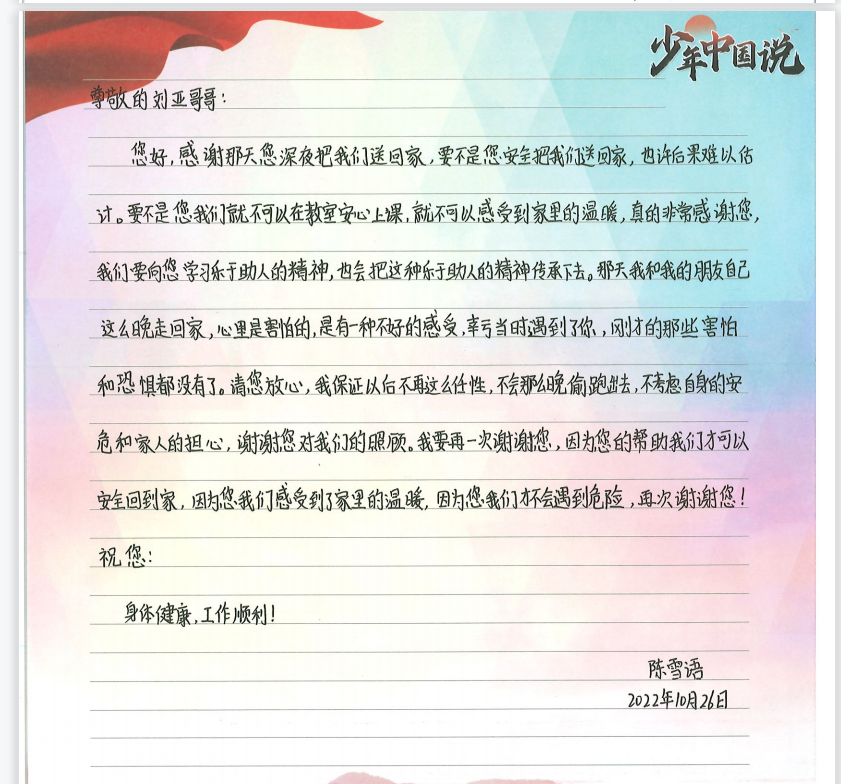 少年中国说
尊敬的刘亚哥哥：
您好，感谢那天您深夜把我们送回家，要不是您安全把我们送回家，也许后果难以估
计。要不是您我们就不可以在教室安心上课，就不可以感受到家里的温暖，真的非常感谢您，
我们要向您学习乐于助人的精神，也会把这种乐于助人的精神传承下去。那天我和我的朋友自己
这么晚走回家，心里是害怕的，是有一种不好的感受，幸亏当时遇到了你，刚才的那些害怕
和恐惧都没有了。请您放心，我保证以后不再这么任性，不会那么晚偷跑出去，不考虑自身的安
危和家人的担心，谢谢您对我们的照顾。我要再一次谢谢您，因为您的帮助我们才可以
安全回到家，因为您我们感受到了家里的温暖，因为您我们才不会遇到危险，再次谢谢您！
祝您：
身体健康，工作顺利！
陈雪语
2022年10月26日